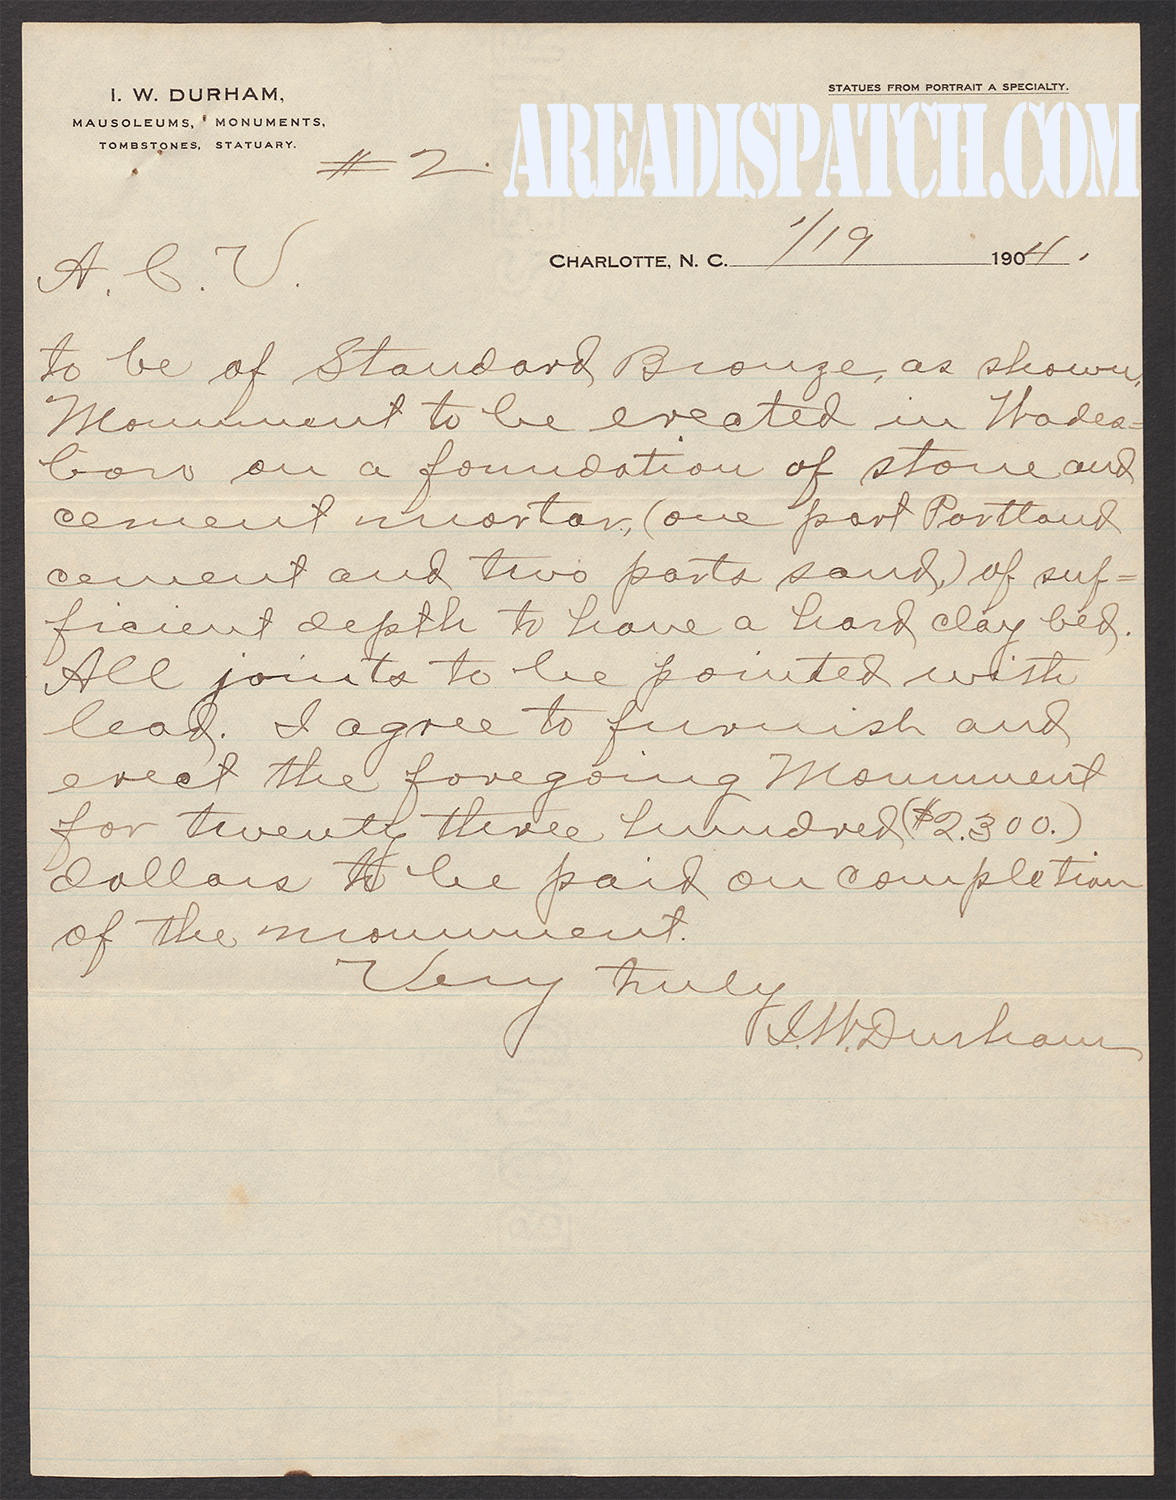 I. W. DURHAM,
MAUSOLEUMS, MONUMENTS,
TOMBSTONES, STATUARY.
STATUES FROM PORTRAIT A SPECIALTY.
AREADISPATCH.COM
# 2.
CHARLOTTE, N. C. 1/19 1904.
A. C. V.
to be of Standard Bronze, as shown,
Monument to be erected in Wades=
boro on a foundation of stone and
cement mortar, (one part Portland
cement and two parts sand,) of suf=
ficient depth to have a hard clay bed.
All joints to be pointed with
lead. I agree to furnish and
erect the foregoing Monument
for twenty three hundred ($2.300.)
dollars to be paid on completion
of the monument.
Very truly
I. W. Durham